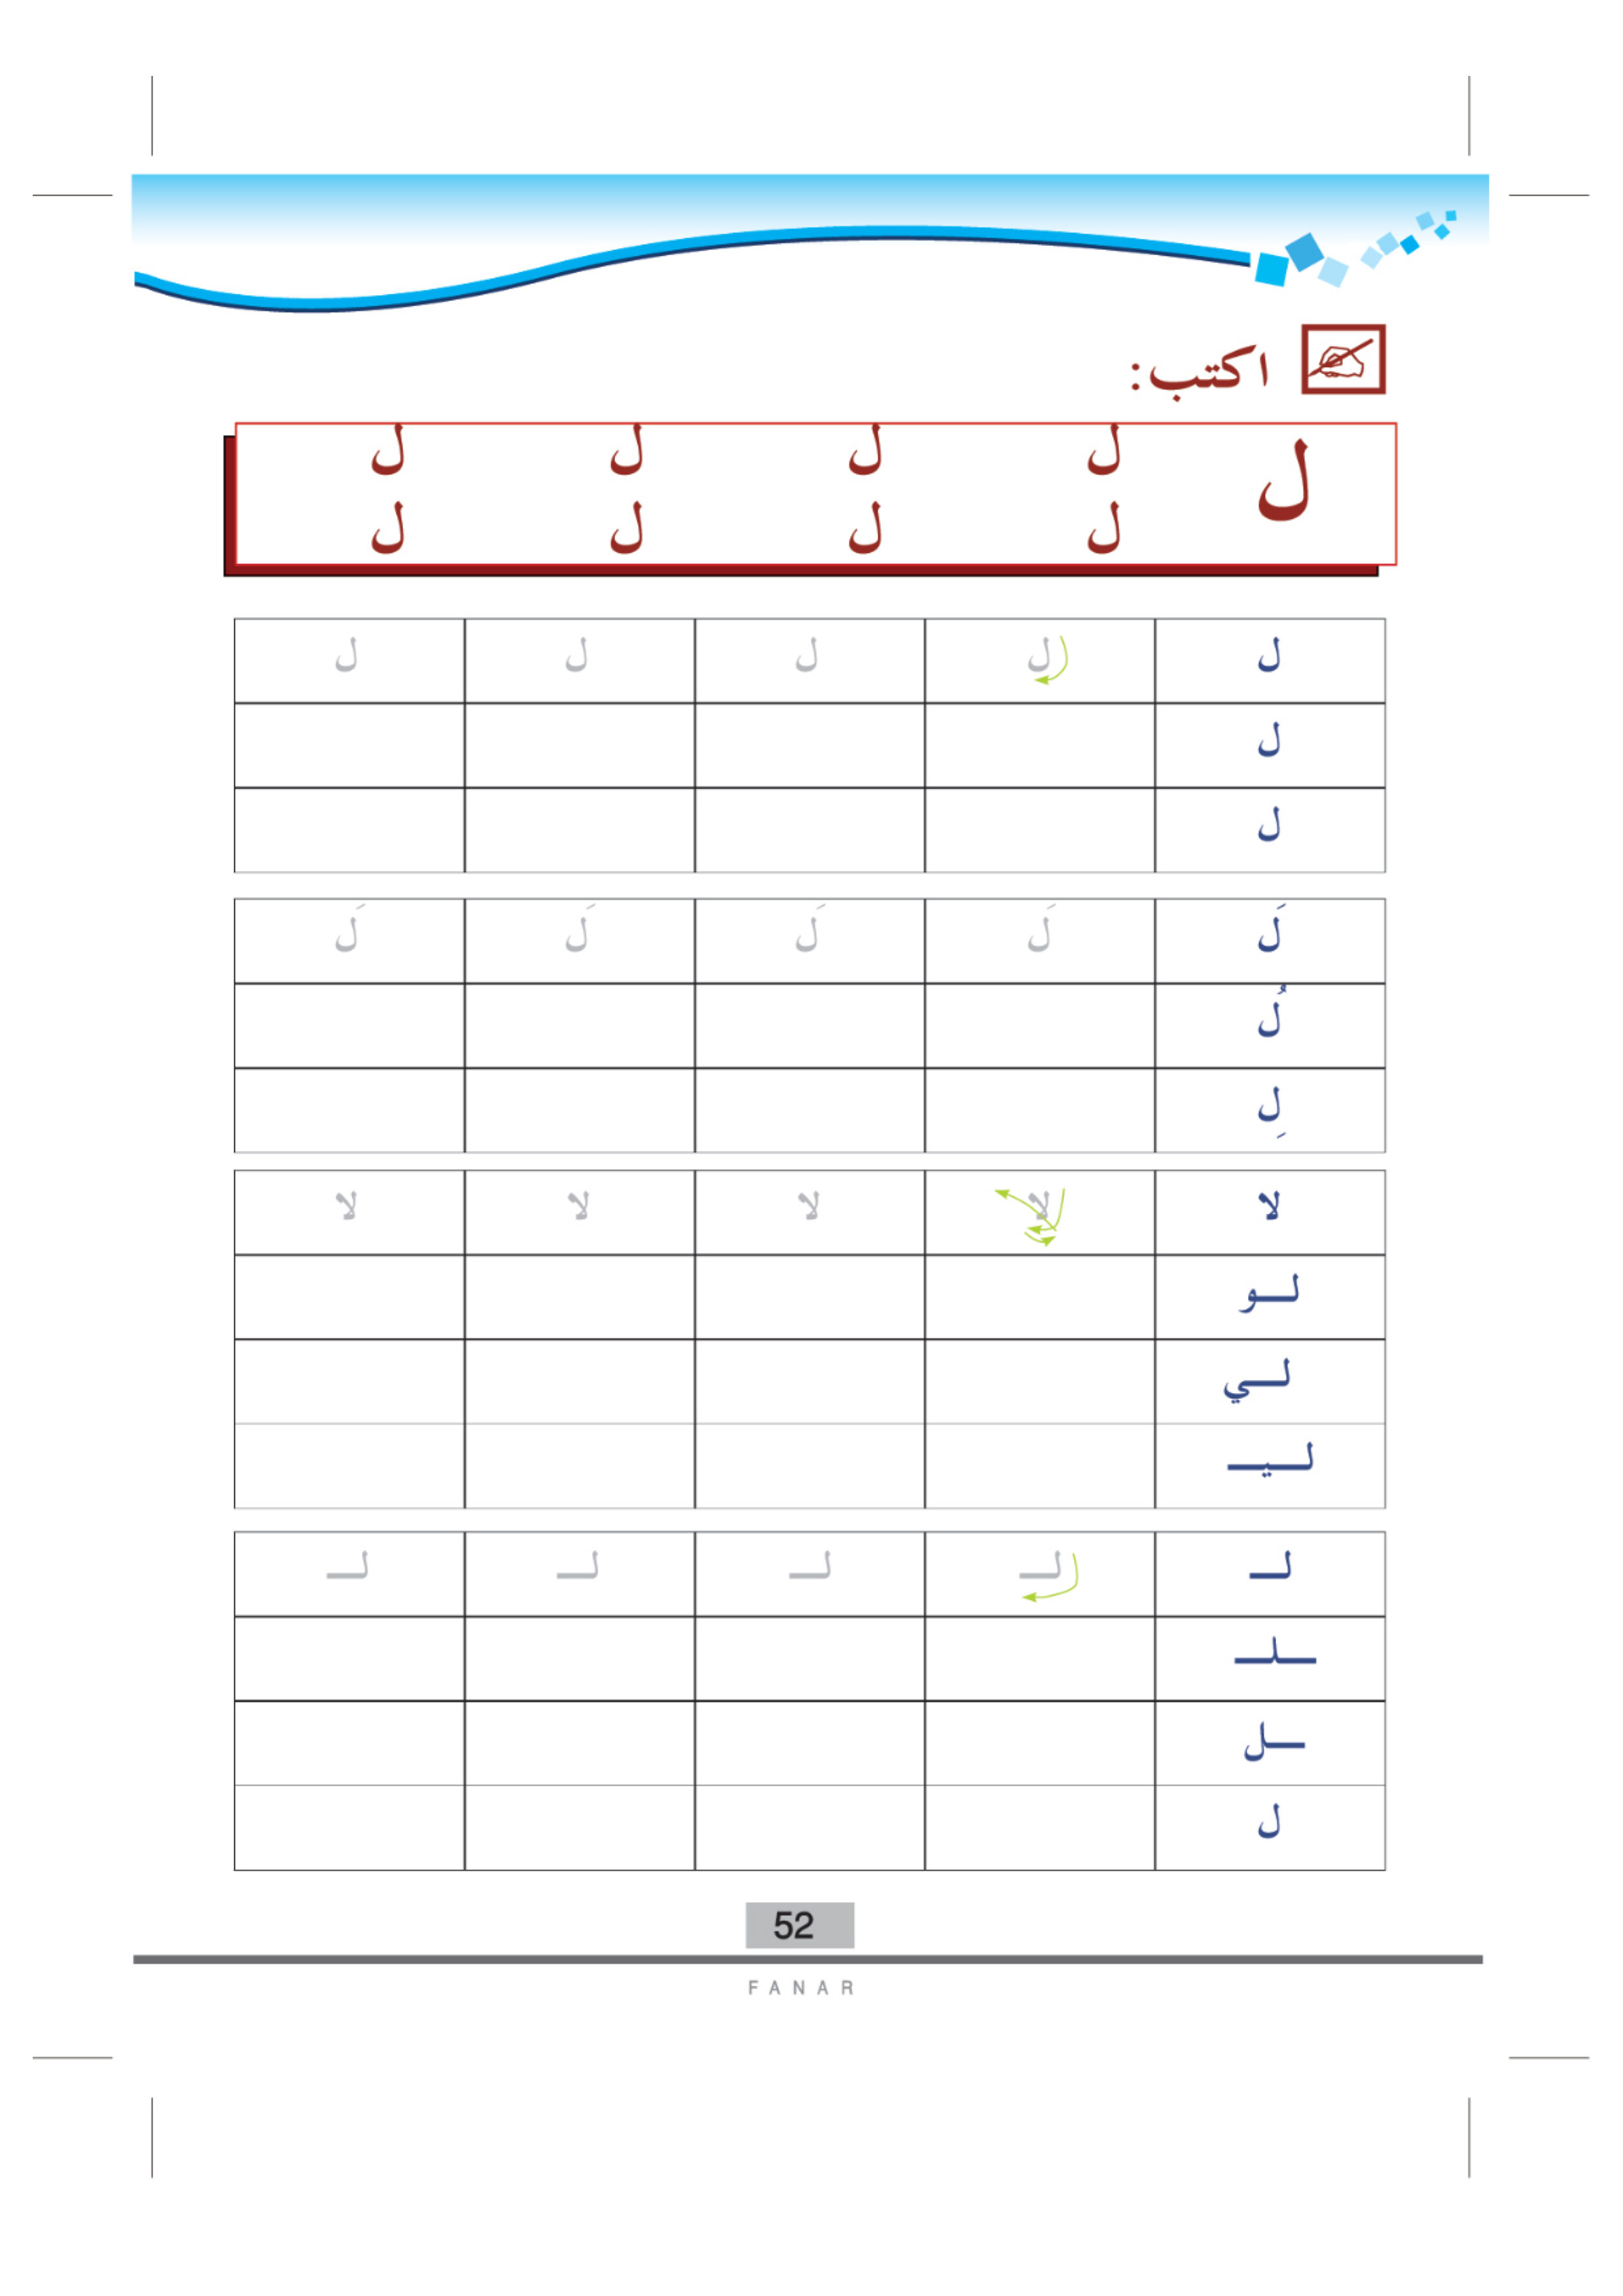 اكتب:
ل ل ل ل ل
ل ل ل ل
ل ل ل ل ل
ل
ل
لَ لَ لَ لَ لَ
لُ
لِ
لا لا لا لا لا
لـــو
لـــي
لـــيـــ
لـــ لـــ لـــ لـــ لـــ
ـــلـــ
ـــل
ل
52
FANAR